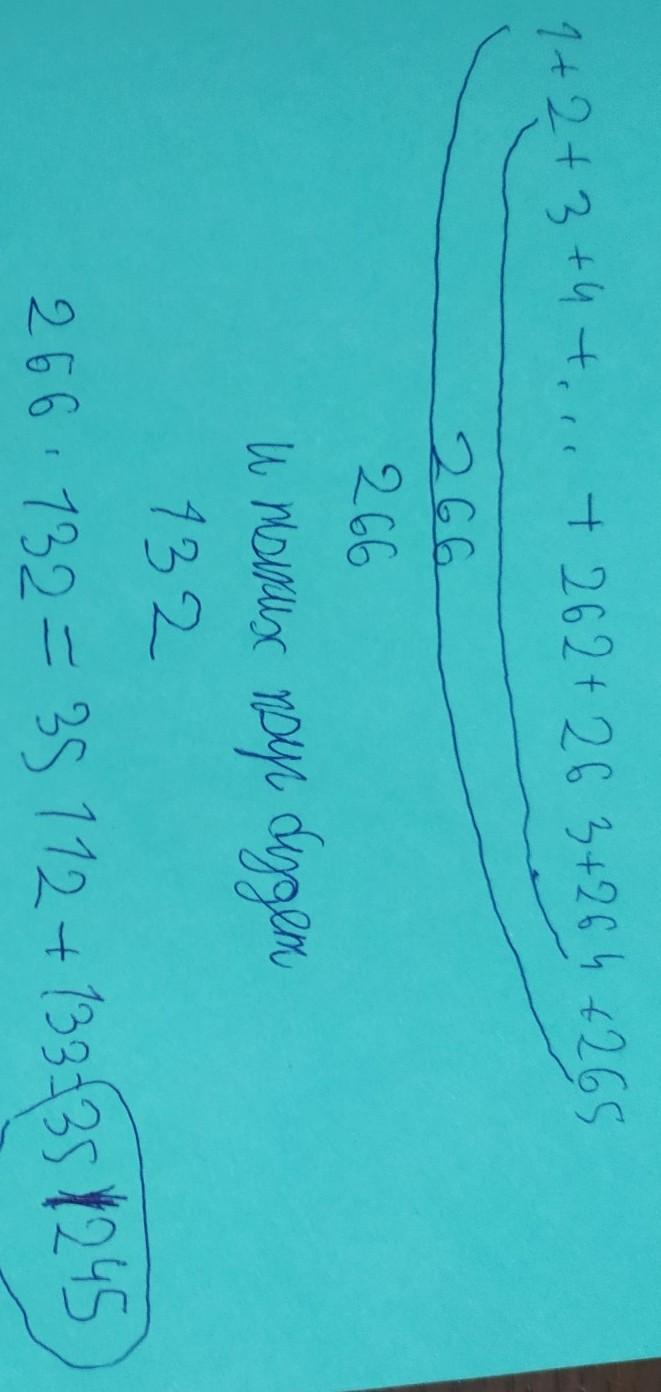 1+2+3+4+...+262+263+264+265
266
266
и таких пар будет
132
266·132=35112+133=35245